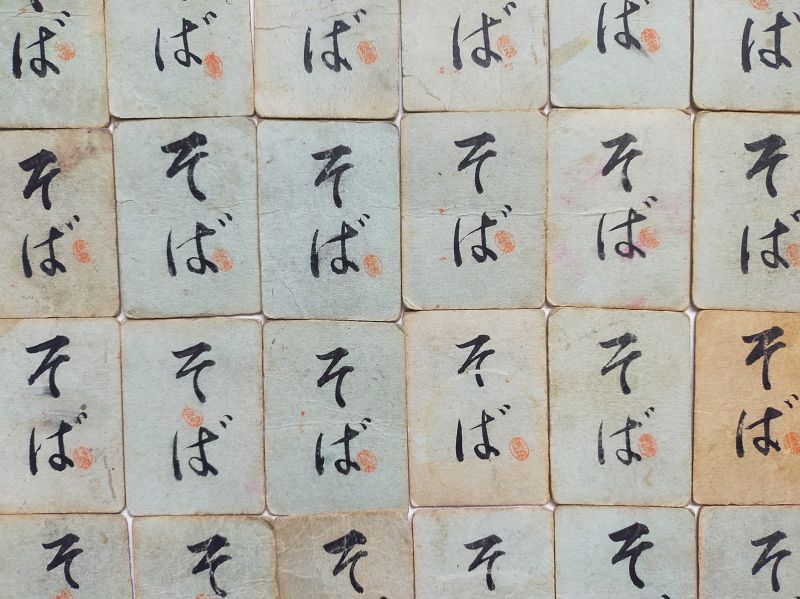 ば
ば
ば
ば
ば
ば
そば
そば
そば
そば
そば
そば
そば
そば
そば
そば
そば
そば
そ
そ
そ
そ
そ
そ